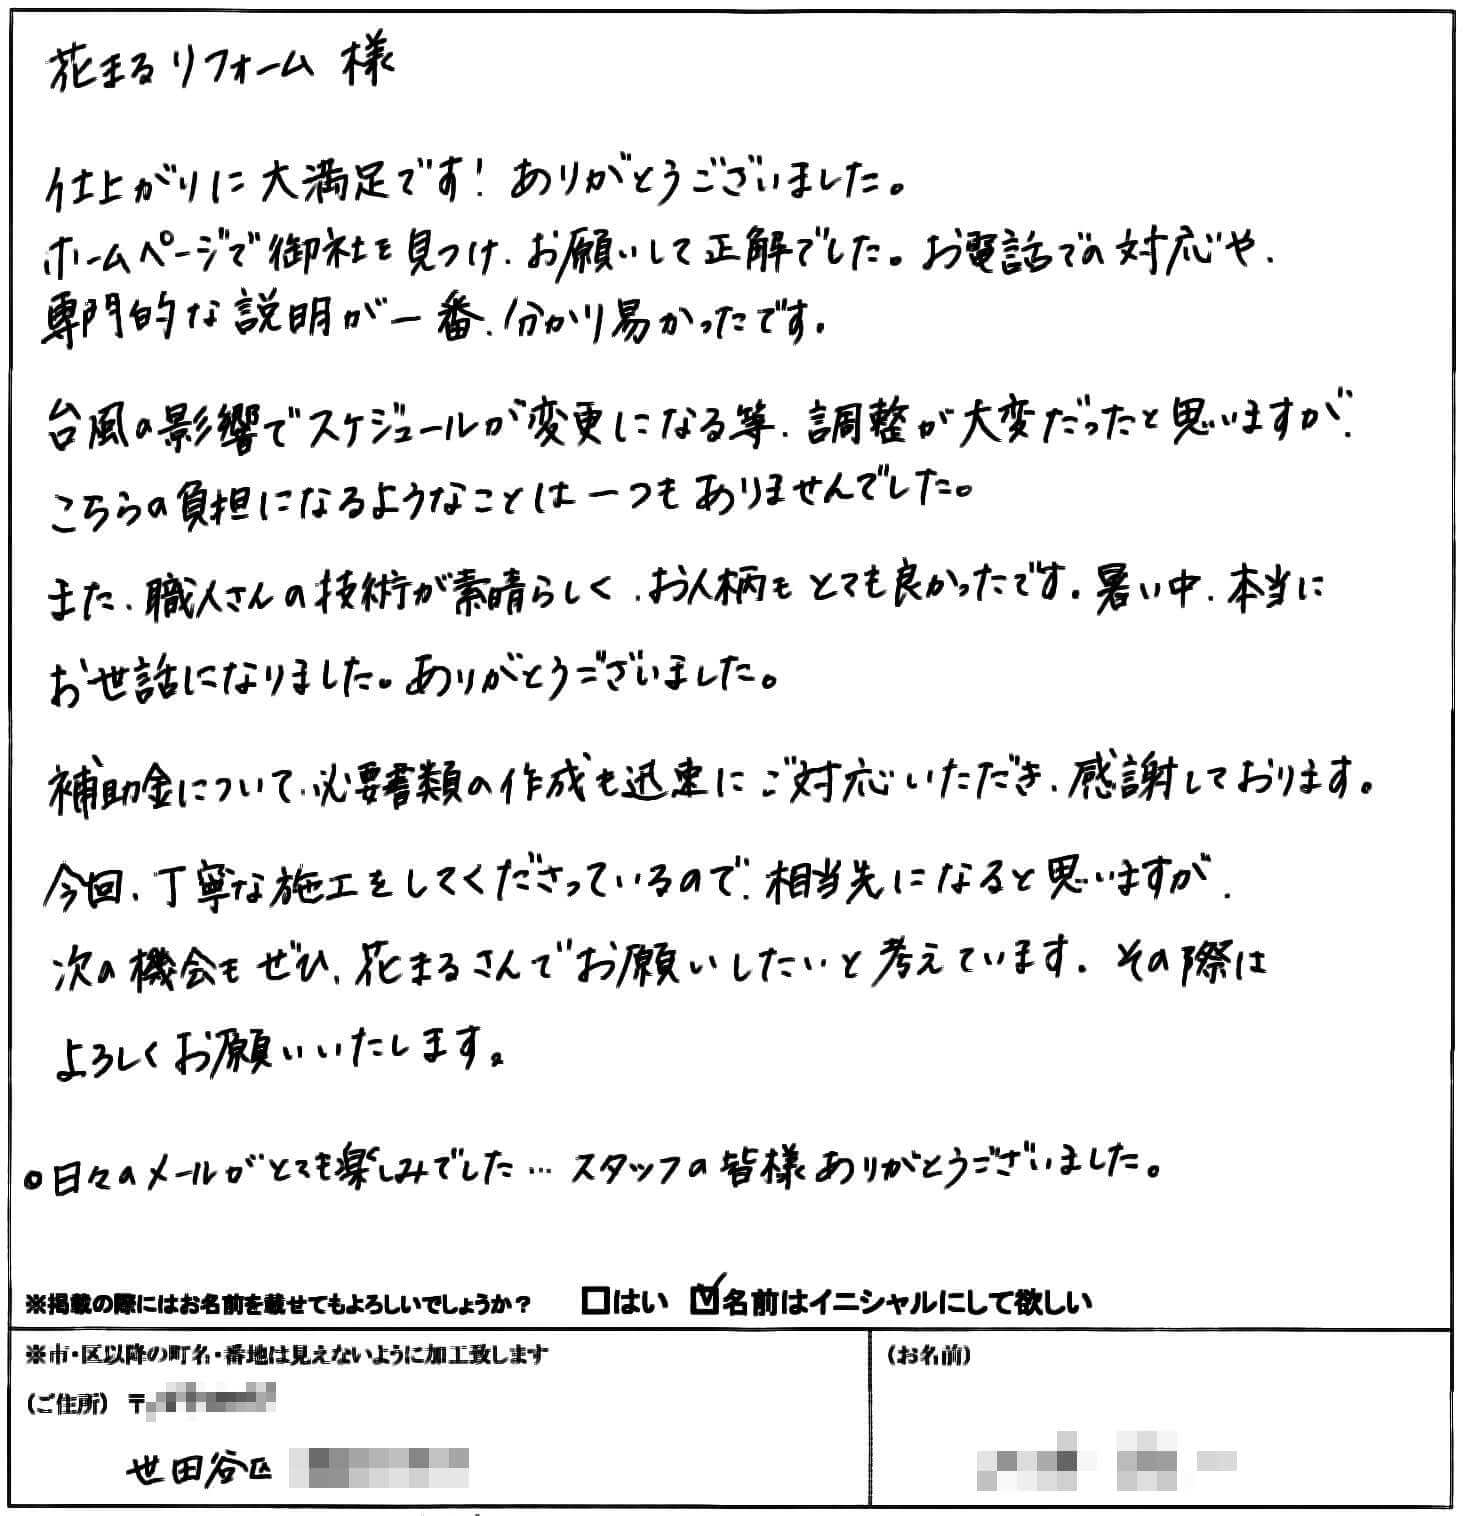 花まるリフォーム 様
仕上がりに大満足です！ありがとうございました。
ホームページで御社を見つけ、お願いして正解でした。お電話での対応や、
専門的な説明が一番、分かり易かったです。
台風の影響でスケジュールが変更になる等、調整が大変だったと思いますが、
こちらの負担になるようなことは一つもありませんでした。
また、職人さんの技術が素晴らしく、お人柄もとても良かったです。暑い中、本当に
お世話になりました。ありがとうございました。
補助金について、必要書類の作成も迅速にご対応いただき、感謝しております。
今回、丁寧な施工をしてくださっているので、相当先になると思いますが、
次の機会もぜひ、花まるさんでお願いしたいと考えています。その際は
よろしくお願いいたします。
○日々のメールがとても楽しみでした…スタッフの皆様ありがとうございました。
※掲載の際にはお名前を載せてもよろしいでしょうか？ □はい ☑名前はイニシャルにして欲しい
※市・区以降の町名・番地は見えないように加工致します
(ご住所) 〒
世田谷区
(お名前)